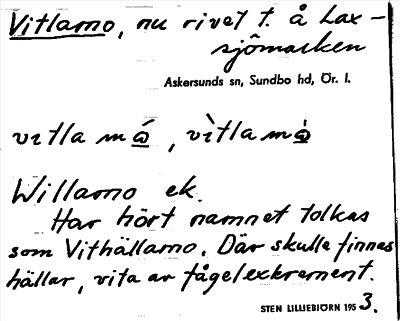 Vitlamo, nu rivet t. å Lax-
sjömarken
Askersunds sn, Sundbo hd, Ör. l.
vitla må, vìtla mà
Willamo ek.
Har hört namnet tolkas
som Vithällamo. Där skulle finnas
hällar, vita av fågelexkrement.
STEN LILLIEBJÖRN 1953.